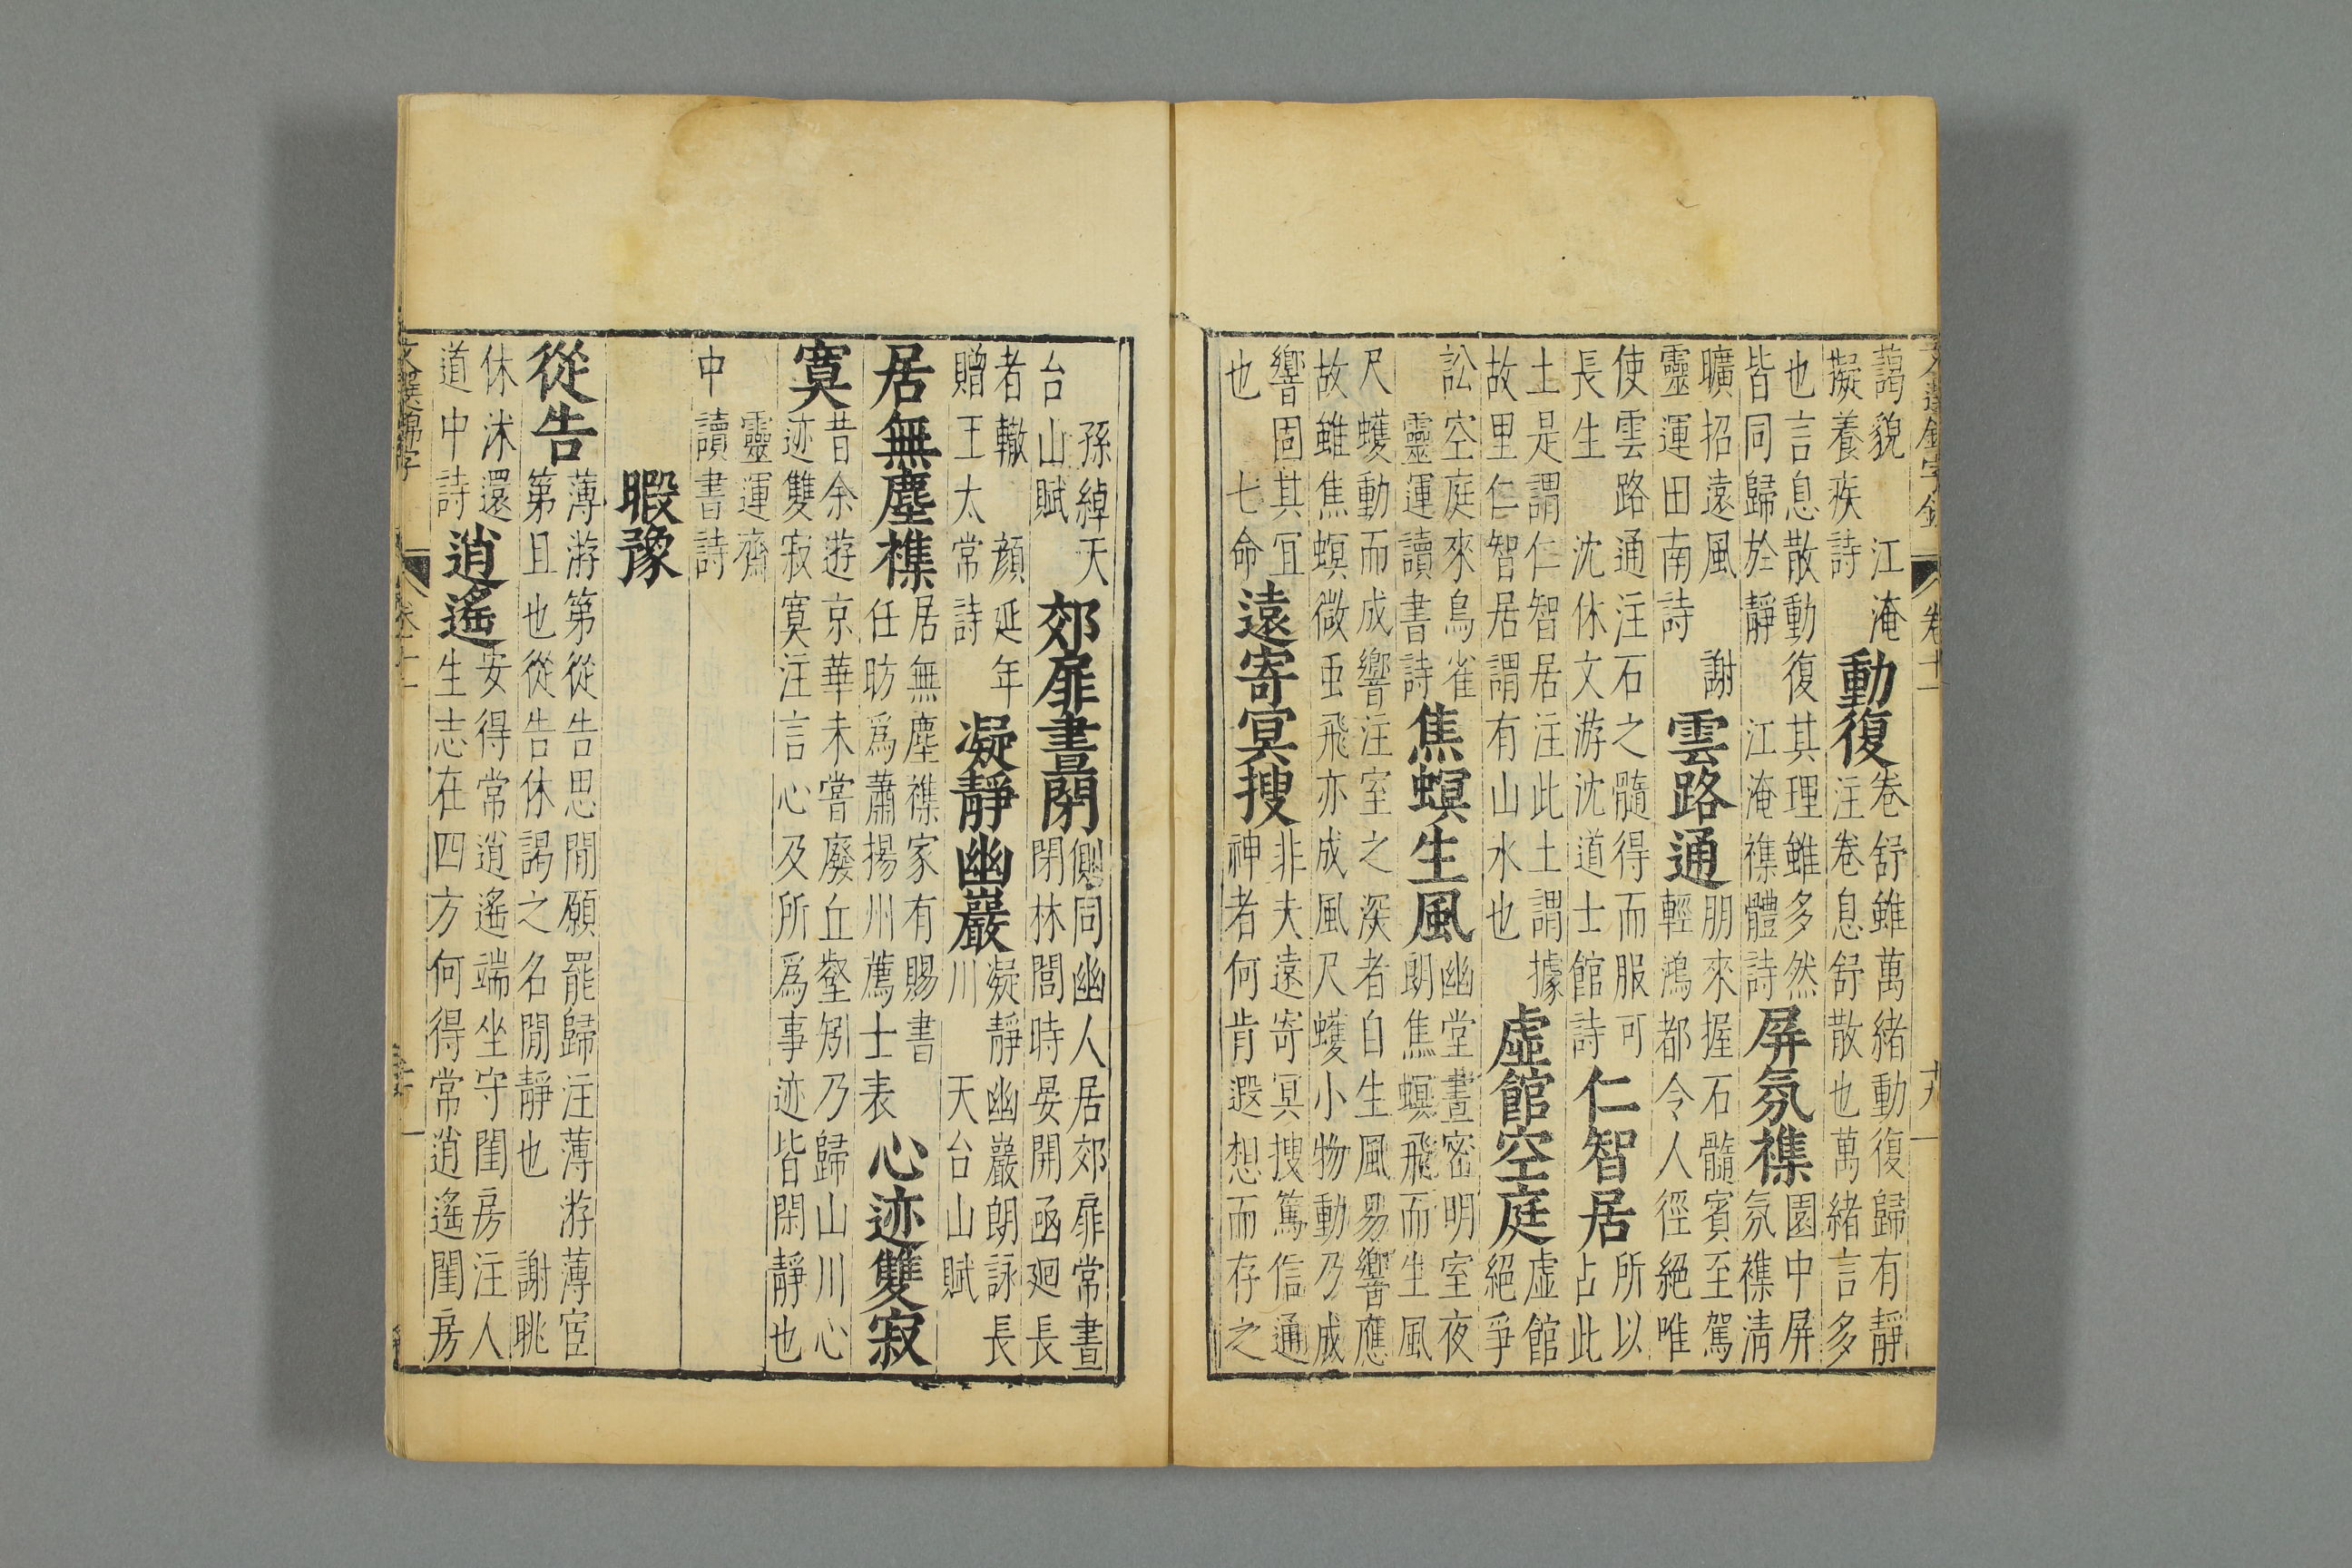 卷十一
藹貌　江淹
擬養疾詩
動復
卷舒雖萬緒動復歸有靜
注卷息舒散也萬緒言多
也言息散動復其理雖多然
皆同歸於靜　江淹襍體詩
屏氛襍
園中屏
氛襍清
曠招遠風　謝
靈運田南詩
雲路通
朋來握石髓賓至駕
輕鴻都令人徑絕唯
使雲路通注石之髓得而服可
長生　沈休文游沈道士館詩
仁智居
所以
占此
土是謂仁智居注此土謂據
故里仁智居謂有山水也
虛館空庭
虛館
絕爭
訟空庭來鳥雀
靈運讀書詩
焦螟生風
幽堂晝密明室夜
朗焦螟飛而生風
尺蠖動而成響注室之深者自生風易響應
故雖焦螟微虫飛亦成風尺蠖小物動乃成
響固其宜
也　七命
遠寄冥搜
非夫遠寄冥搜篤信通
神者何肯遐想而存之
孫綽天
台山賦
郊扉晝閉
側同幽人居郊扉常晝
閉林閭時晏開亟廻長
者轍　顏延年
贈王太常詩
凝靜幽巖
凝靜幽巖朗詠長
川　天台山賦
居無塵襍
居無塵襍家有賜書
任昉爲蕭揚州薦士表
心迹雙寂
寞
昔余遊京華未嘗廢丘壑矧乃歸山川心
迹雙寂寞注言心及所爲事迹皆閑靜也
靈運齋
中讀書詩
暇豫
從告
薄游第從告思閒願罷歸注薄游薄宦
第且也從告休謁之名閒靜也　謝朓
休沐還
道中詩
逍遙
安得常逍遙端坐守閨房注人
生志在四方何得常逍遙閨房
文選錦字
卷十一